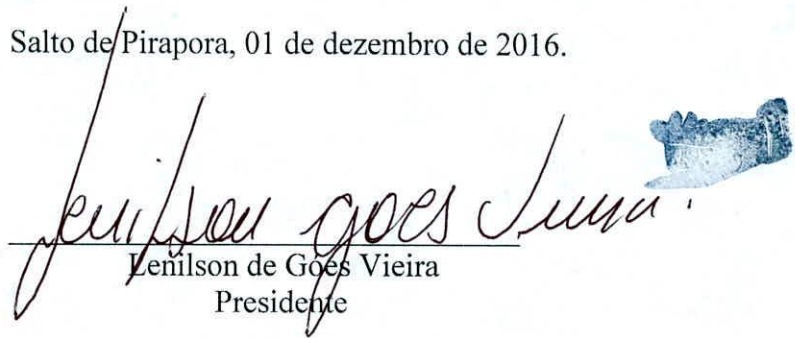 Salto de Pirapora, 01 de dezembro de 2016.
Lenilson goes Vieira.
Lenilson de Góes Vieira
Presidente